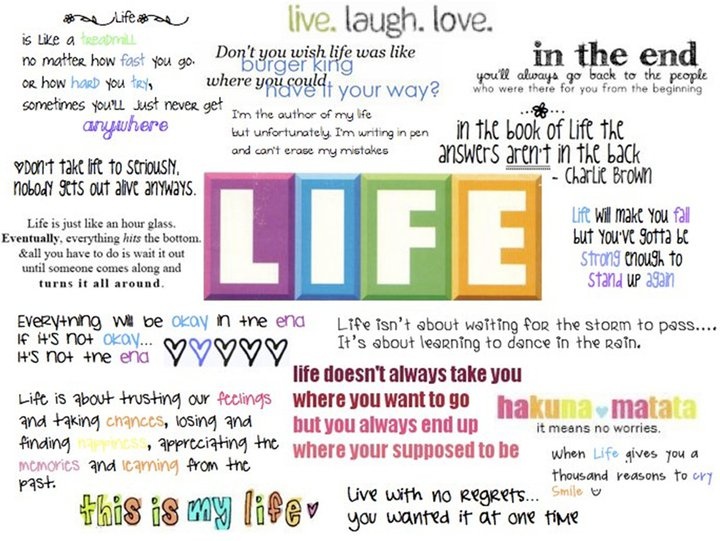 Life
is Like a treadmill
no matter how fast you go.
or how hard you try,
sometimes you'll Just never get
anywhere
live. laugh. love.
Don't you wish life was like
burger king
where you could
have it your way?
I'm the author of my life
but unfortunately. I'm writing in pen
and can't erase my mistakes
in the end
you'll always go back to the people
who were there for you from the beginning
in the book of life the
answers aren't in the back
- Charlie Brown
Don't take life to seriously,
nobody gets out alive anyways.
Life is just like an hour glass.
Eventually, everything hits the bottom.
&all you have to do is wait it out
until someone comes along and
turns it all around.
LIFE
Life will make you fall
but you've gotta be
strong enough to
stand up again
Everything will be okay in the end
if it's not okay...
it's not the end
Life isn't about waiting for the storm to pass....
It's about learning to dance in the rain.
Life is about trusting our feelings
and taking chances, losing and
finding happiness, appreciating the
memories and learning from the
past.
life doesn't always take you
where you want to go
but you always end up
where your supposed to be
hakuna matata
it means no worries.
when Life gives you a
thousand reasons to cry
Smile
this is my life
Live with no regrets...
you wanted it at one time